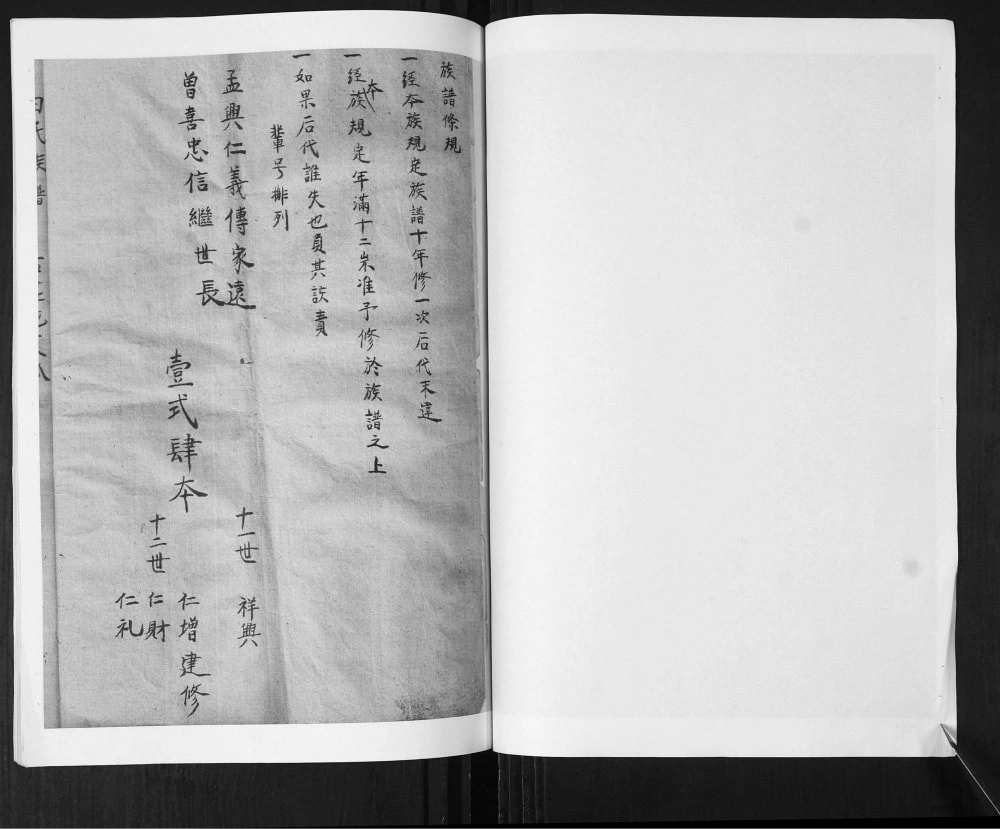 族譜條規
一經本族規定族譜十年修一次后代末違
一經本族規定年滿十二岽准予修於族譜之上
一如果后代誰失也負其該責
輩号排列
孟興仁義傳家遠
曾喜忠信繼世長
壹式肆本
十一世 祥興
十二世 仁增 建修
仁財
仁礼
氏族譜